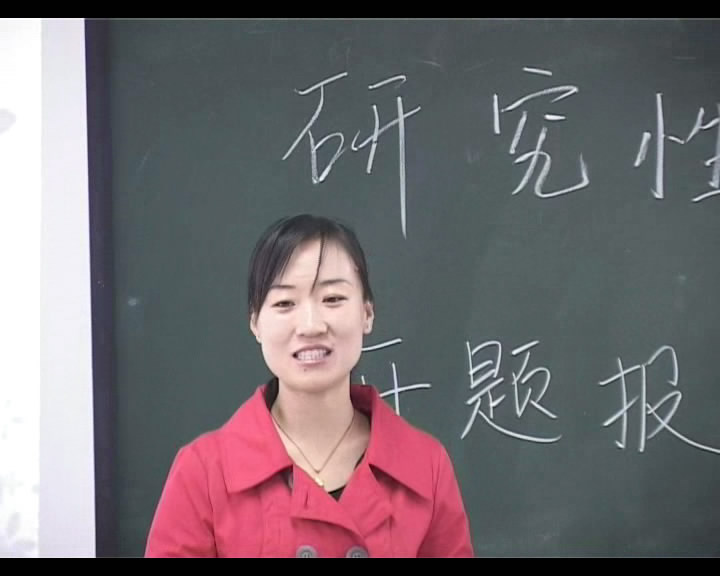 研究性
开题报